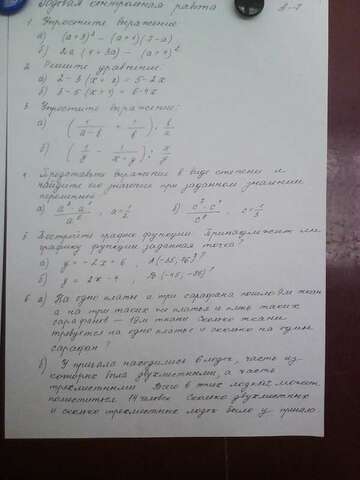 Годовая контрольная работа А-7
1. Упростите выражение:
а) (a+3)² - (a+1)(2-a)
б) 2a(4+3a) - (a+4)²
2. Решите уравнение:
а) 2-3(x+2) = 5-2x
б) 3-5(x+1) = 6-4x
3. Упростите выражение:
а) (1/(a-b) + 1/b) : b/a
б) (1/y - 1/(x-y)) : x/y
4. Представьте выражение в виде степени и
найдите его значение при заданном значении
переменной
5. Постройте график функции. Принадлежит ли
графику функции заданная точка?
а) y = -2x+6, A(-35; 76)?
б) y = 2x-4, B(-45; -86)?
6. а) На одно платье и три сарафана пошло 9м ткани
а на три таких же платья и пять таких
сарафанов - 19м ткани. Сколько ткани
требуется на одно платье и сколько на один
сарафан?
б) У причала находились 6 лодок, часть из
которых была двухместными, а часть
трехместными. Всего в эти лодки может
поместиться 14 человек. Сколько двухместных
и сколько трехместных лодок было у причала